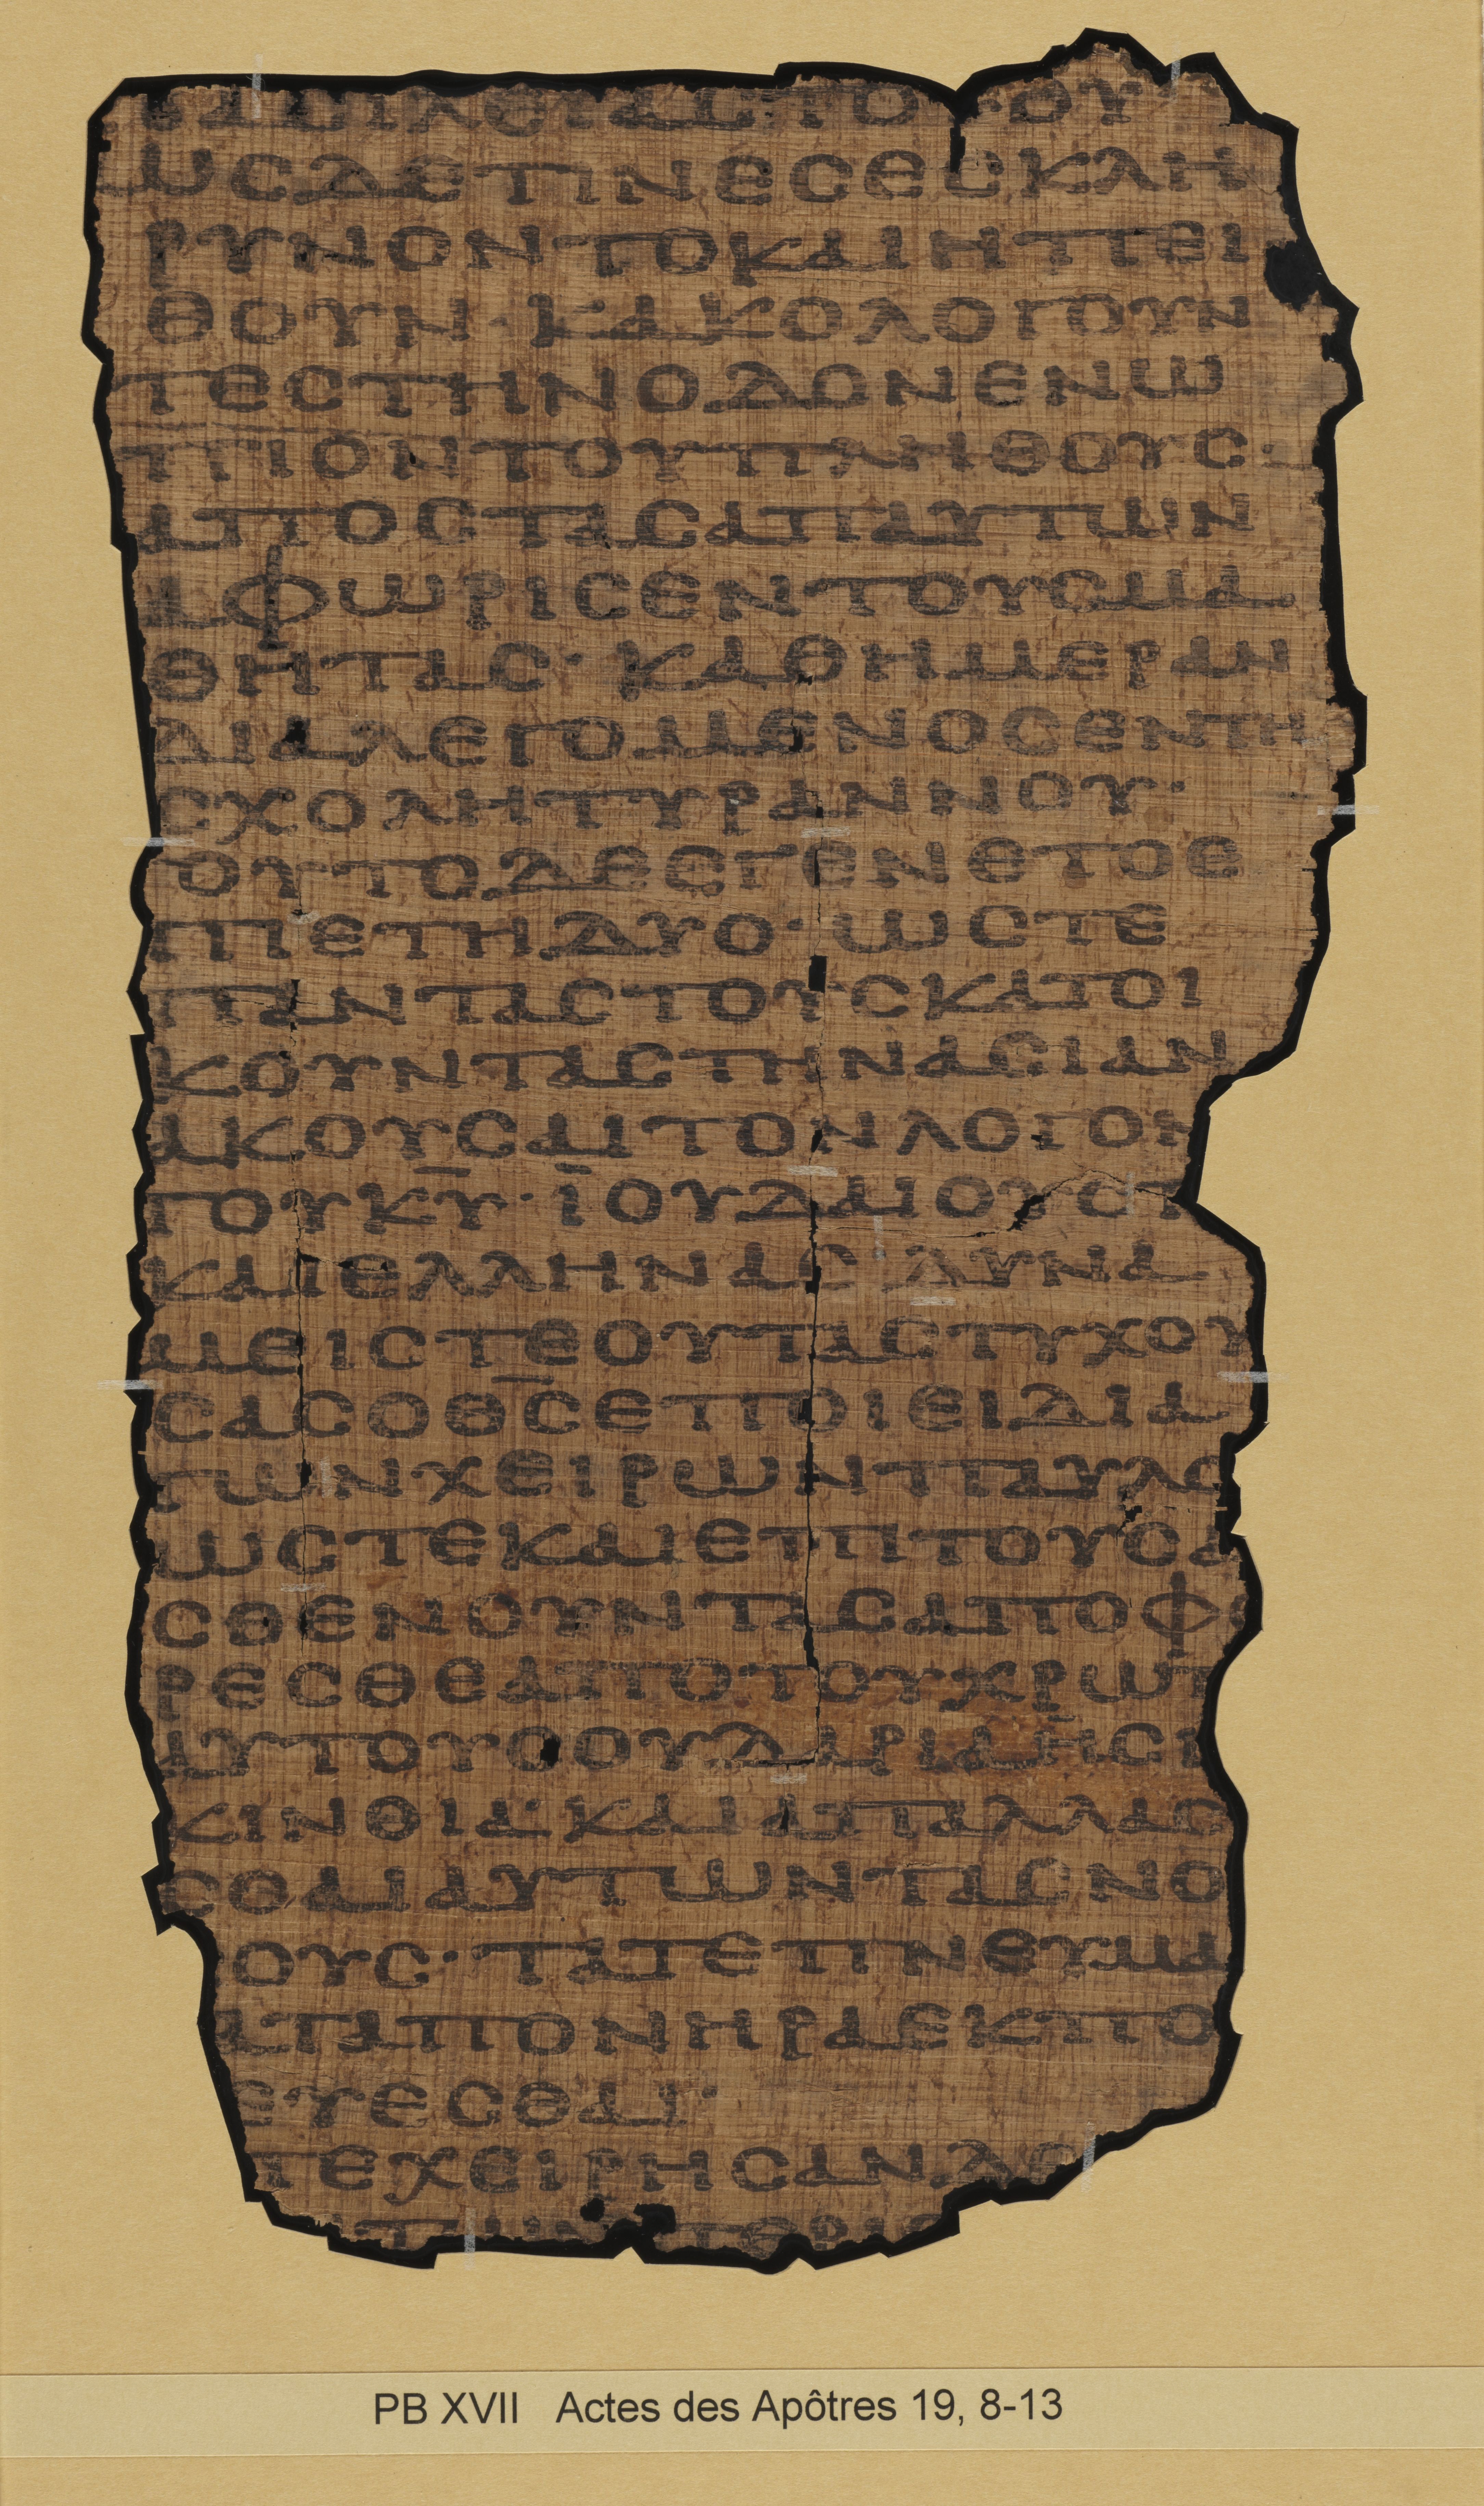 ΒΑΣΙΛΕΙΑΣ ΤΟΥ
ΩϹΔΕΤΙΝΕϹΕϹΚΛΗ
ΡΥΝΟΝΤΟΚΑΙΗΠΕΙ
ΘΟΥΝ·ΚΑΚΟΛΟΓΟΥΝ
ΤΕϹΤΗΝΟΔΟΝΕΝΩ
ΠΙΟΝΤΟΥΠΛΗΘΟΥϹ·
ΑΠΟϹΤΑϹΑΠΑΥΤΩΝ
ΑΦΩΡΙϹΕΝΤΟΥϹΜΑ
ΘΗΤΑϹ·ΚΑΘΗΜΕΡΑΝ
ΔΙΑΛΕΓΟΜΕΝΟϹΕΝΤΗ
ϹΧΟΛΗΤΥΡΑΝΝΟΥ·
ΤΟΥΤΟΔΕΕΓΕΝΕΤΟΕ
ΠΙΕΤΗΔΥΟ·ΩϹΤΕ
ΠΑΝΤΑϹΤΟΥϹΚΑΤΟΙ
ΚΟΥΝΤΑϹΤΗΝΑϹΙΑΝ
ΑΚΟΥϹΑΙΤΟΝΛΟΓΟΝ
ΤΟΥΚ̅Υ̅·ΙΟΥΔΑΙΟΥϹΤ
ΚΑΙΕΛΛΗΝΑϹ ΔΥΝΑ
ΜΕΙϹΤΕΟΥΤΑϹΤΥΧΟΥ
ϹΑϹΟΘ̅Ϲ̅ΕΠΟΙΕΙΔΙΑ
ΤΩΝΧΕΙΡΩΝΠΑΥΛΟ
ΩϹΤΕΚΑΙΕΠΙΤΟΥϹΑ
ϹΘΕΝΟΥΝΤΑϹΑΠΟΦ
ΡΕϹΘΕΑΠΟΤΟΥΧΡΩΤ
ΑΥΤΟΥϹΟΥΔΑΡΙΑΗϹΙ
ΚΙΝΘΙΑ·ΚΑΙΑΠΑΛΛΑϹ
ϹΘΑΙΑΥΤΩΝΤΑϹΝΟ
ΟΥϹ·ΤΑΤΕΠΝΕΥΜΑ
ΑΤΑΠΟΝΗΡΑΕΚΠΟ
ΕΥΕϹΘΑΙ·
ΠΕΧΕΙΡΗϹΑΝΔΕ
ΤΩΝ ΠΕΡΙΕ
PB XVII Actes des Apôtres 19, 8-13